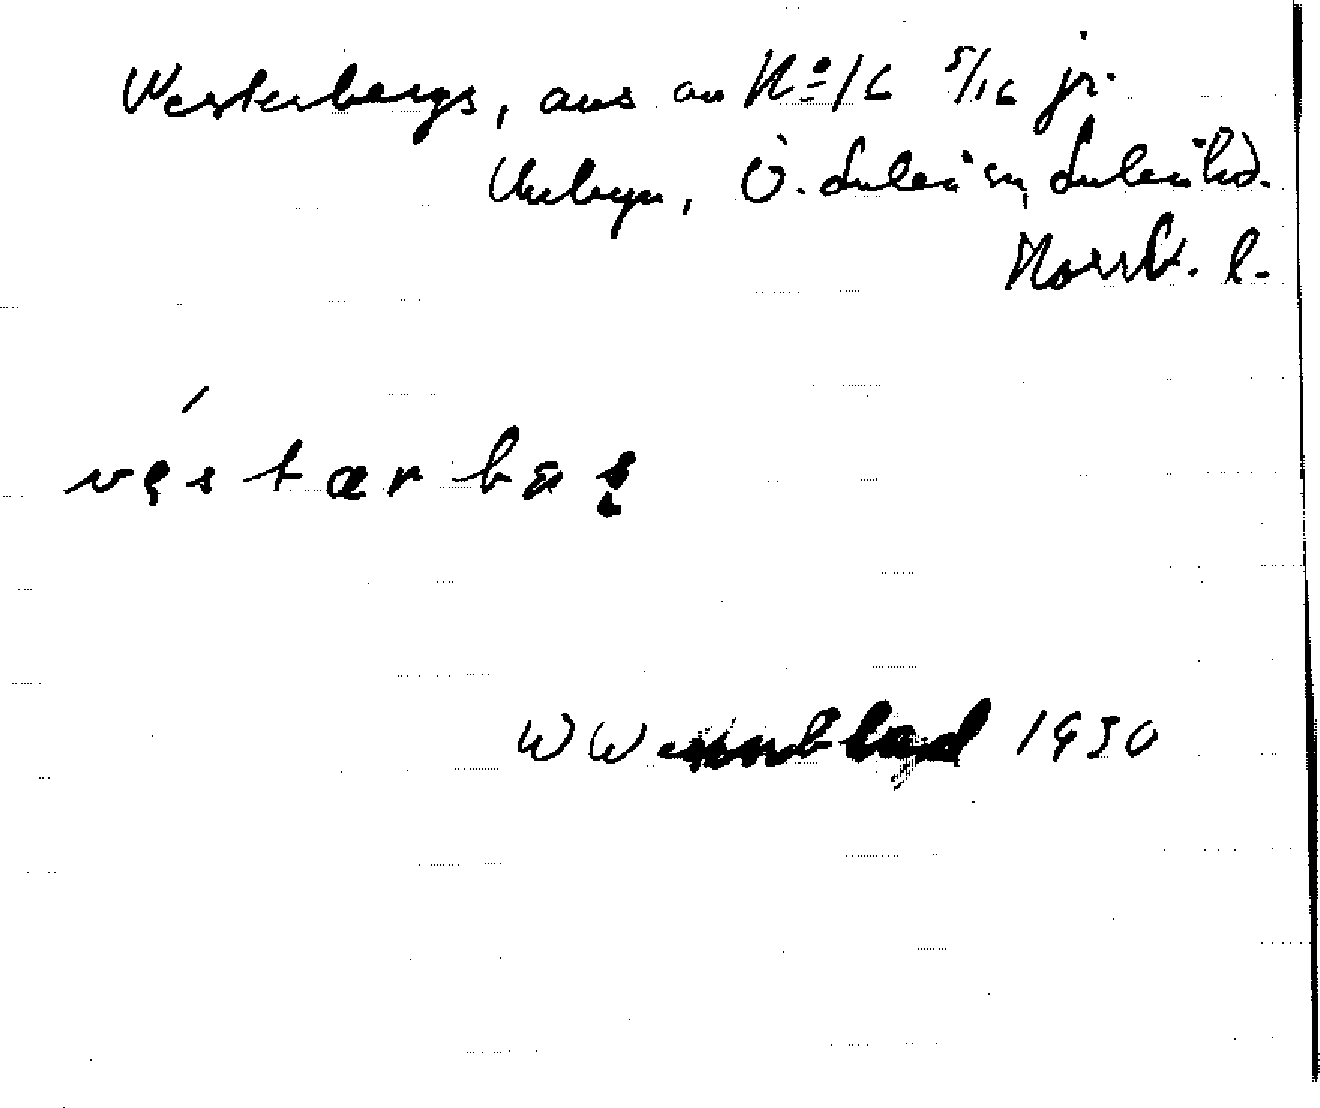 Westerbergs, avs av Nº 16 5/16 jr.
Unbyn, Ö. Luleå sn, Luleå hd.
Norrb. l.
W Wennblad 1930